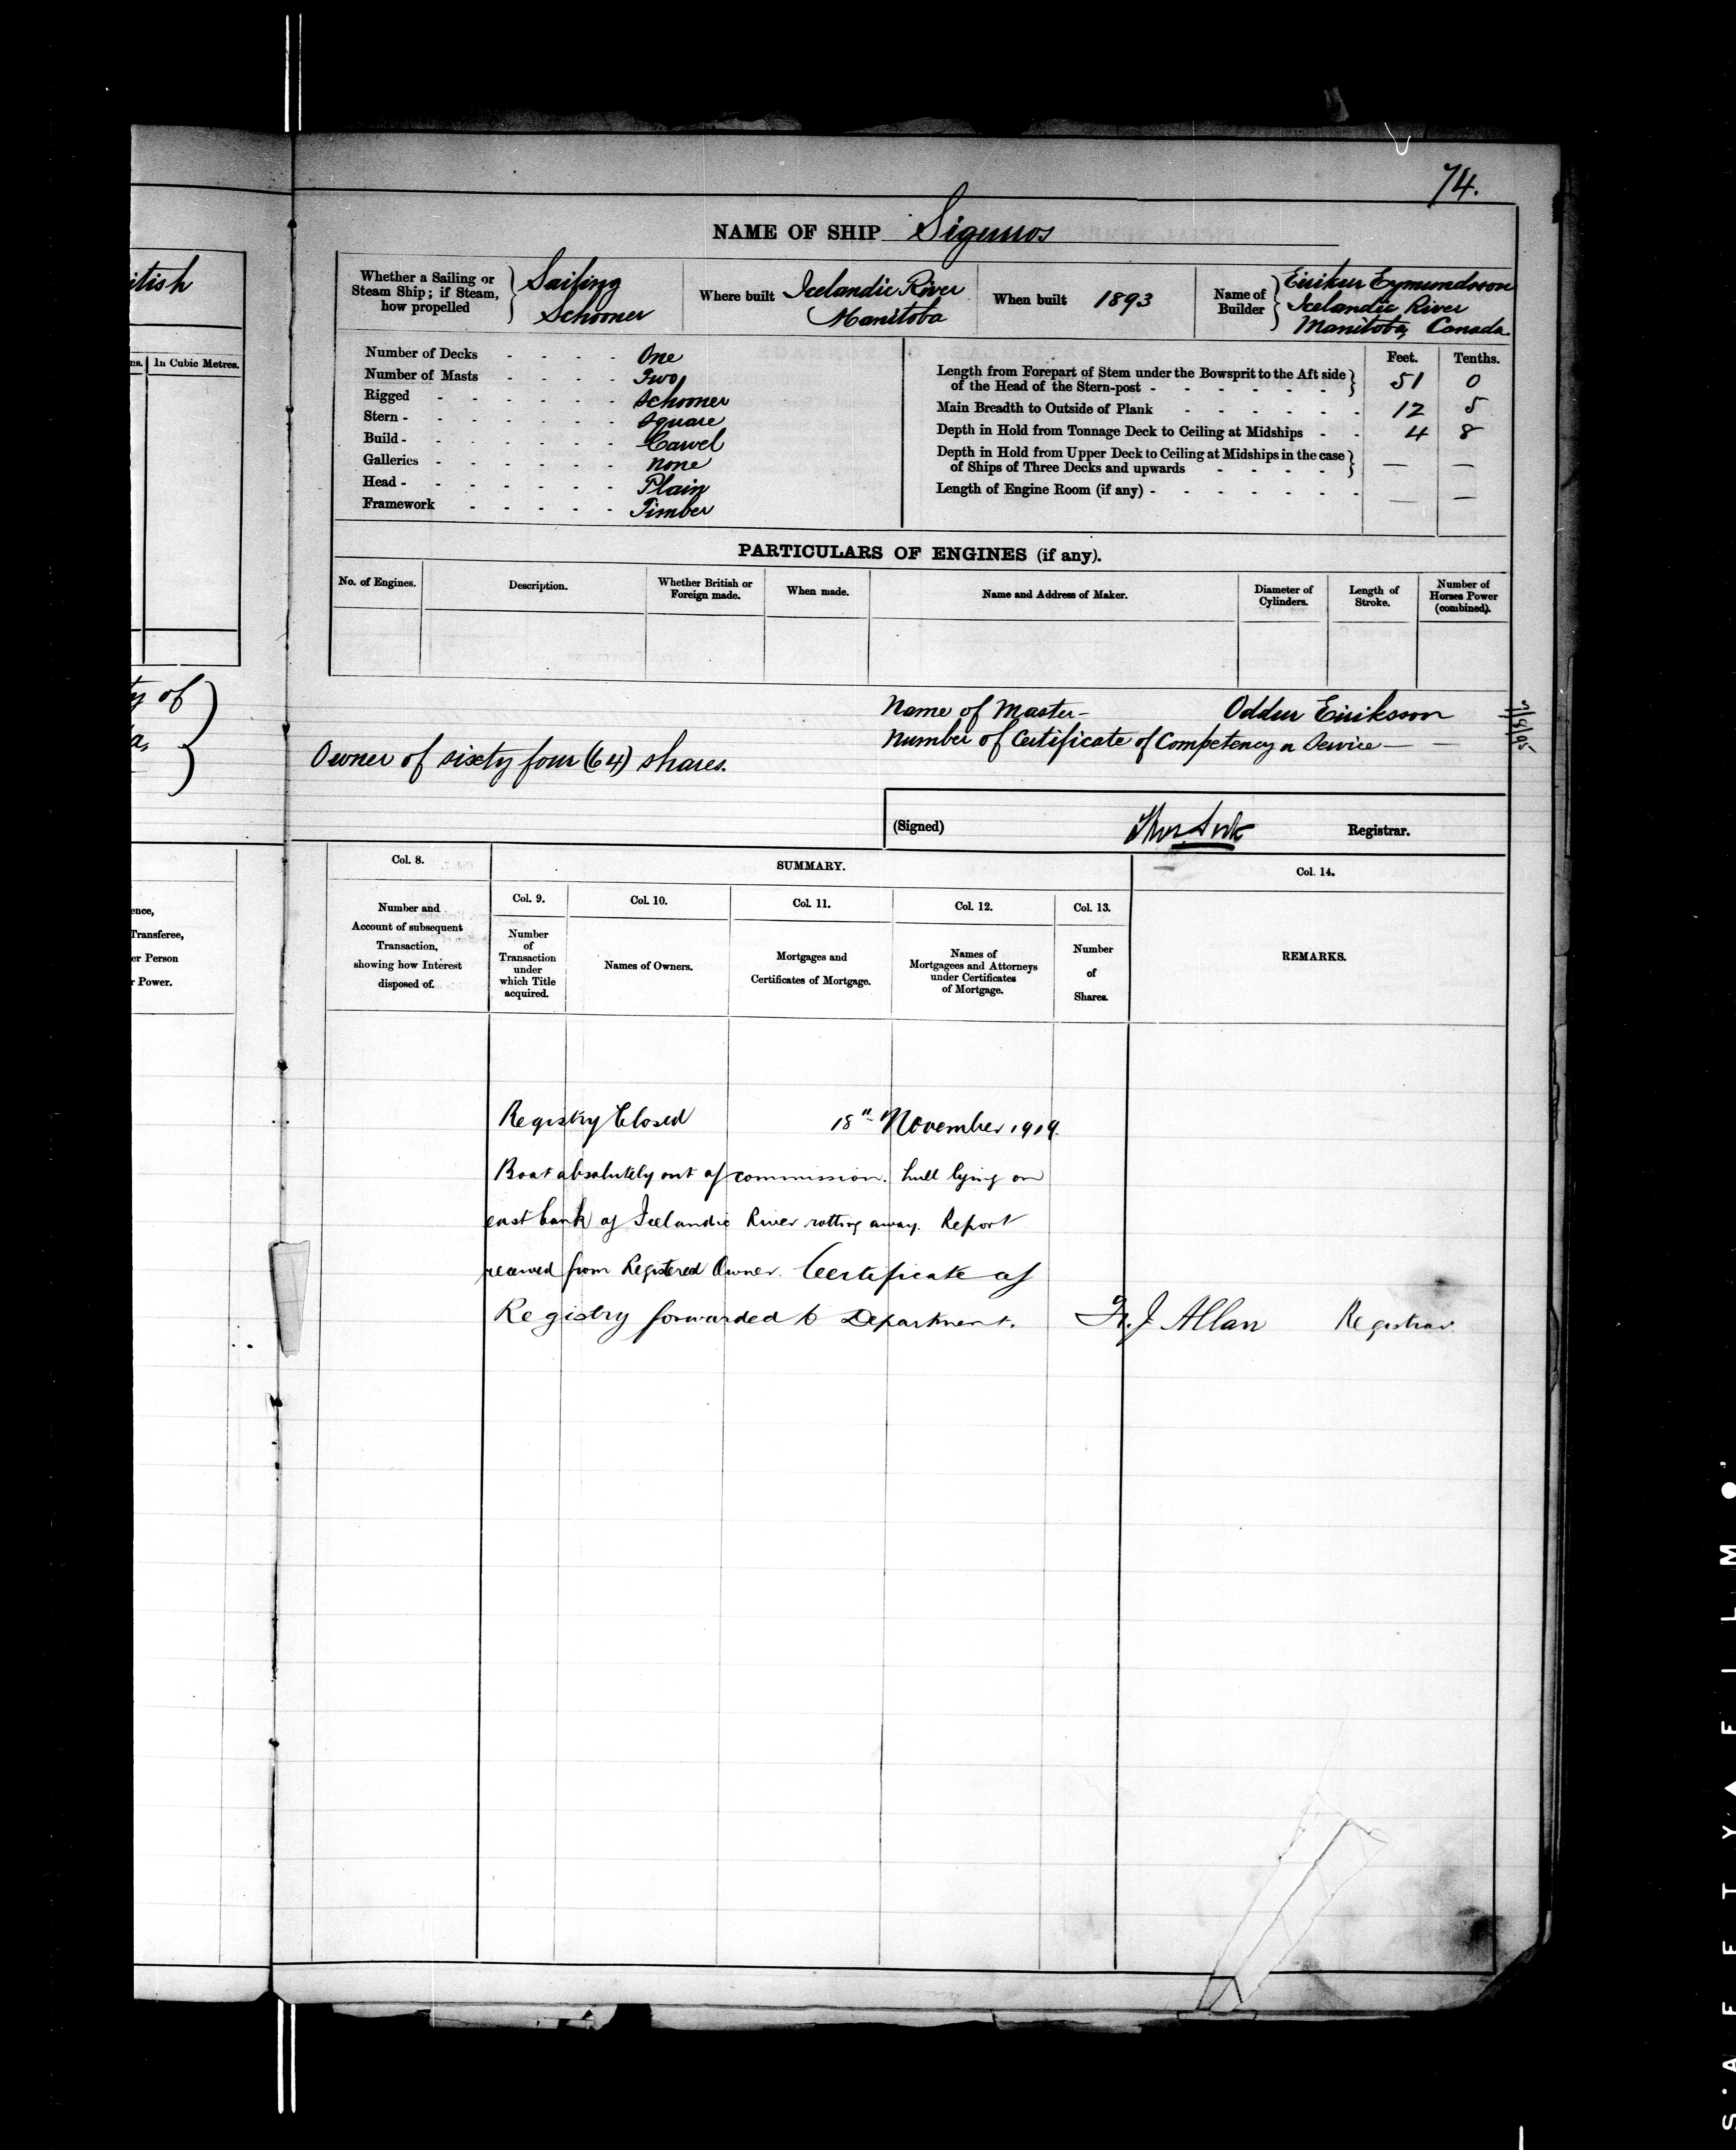 74.
NAME OF SHIP Sigurros
itish
Whether a Sailing or
Steam Ship; if Steam,
how propelled
Sailing
Schooner
Where built Icelandic River
Manitoba
When built 1893
Name of
Builder
Eirikur Eymundsson
Icelandic River
Manitoba, Canada.
es. In Cubic Metres.
Number of Decks - - - - One
Number of Masts - - - - Two
Rigged - - - - - - Schooner
Stern - - - - - - - Square
Build - - - - - - - Carvel
Galleries - - - - - - none
Head - - - - - - - Plain
Framework - - - - - Timber
Feet. Tenths.
Length from Forepart of Stem under the Bowsprit to the Aft side
of the Head of the Stern-post - - - - - - - 51 0
Main Breadth to Outside of Plank - - - - - - 12 5
Depth in Hold from Tonnage Deck to Ceiling at Midships - - 4 8
Depth in Hold from Upper Deck to Ceiling at Midships in the case
of Ships of Three Decks and upwards - - - - — —
Length of Engine Room (if any) - - - - - - - — —
PARTICULARS OF ENGINES (if any).
No. of Engines.
Description.
Whether British or
Foreign made.
When made.
Name and Address of Maker.
Diameter of
Cylinders.
Length of
Stroke.
Number of
Horses Power
(combined).
ty of
a,
Name of Master - Oddur Eiriksson
Number of Certificate of Competency or Service — —
Owner of sixty four (64) shares.
(Signed) Registrar.
Col. 8.
SUMMARY.
Col. 14.
Col. 9. Col. 10. Col. 11. Col. 12. Col. 13.
ence,
Transferee,
er Person
r Power.
Number and
Account of subsequent
Transaction,
showing how Interest
disposed of.
Number
of
Transaction
under
which Title
acquired.
Names of Owners.
Mortgages and
Certificates of Mortgage.
Names of
Mortgagees and Attorneys
under Certificates
of Mortgage.
Number
of
Shares.
REMARKS.
Registry Closed 18" November 1919.
Boat absolutely out of commission. hull lying on
east bank of Icelandic River rotting away. Report
received from Registered Owner. Certificate of
Registry forwarded to Department. J. Allan Registrar.
S'AFETY▲FILM●